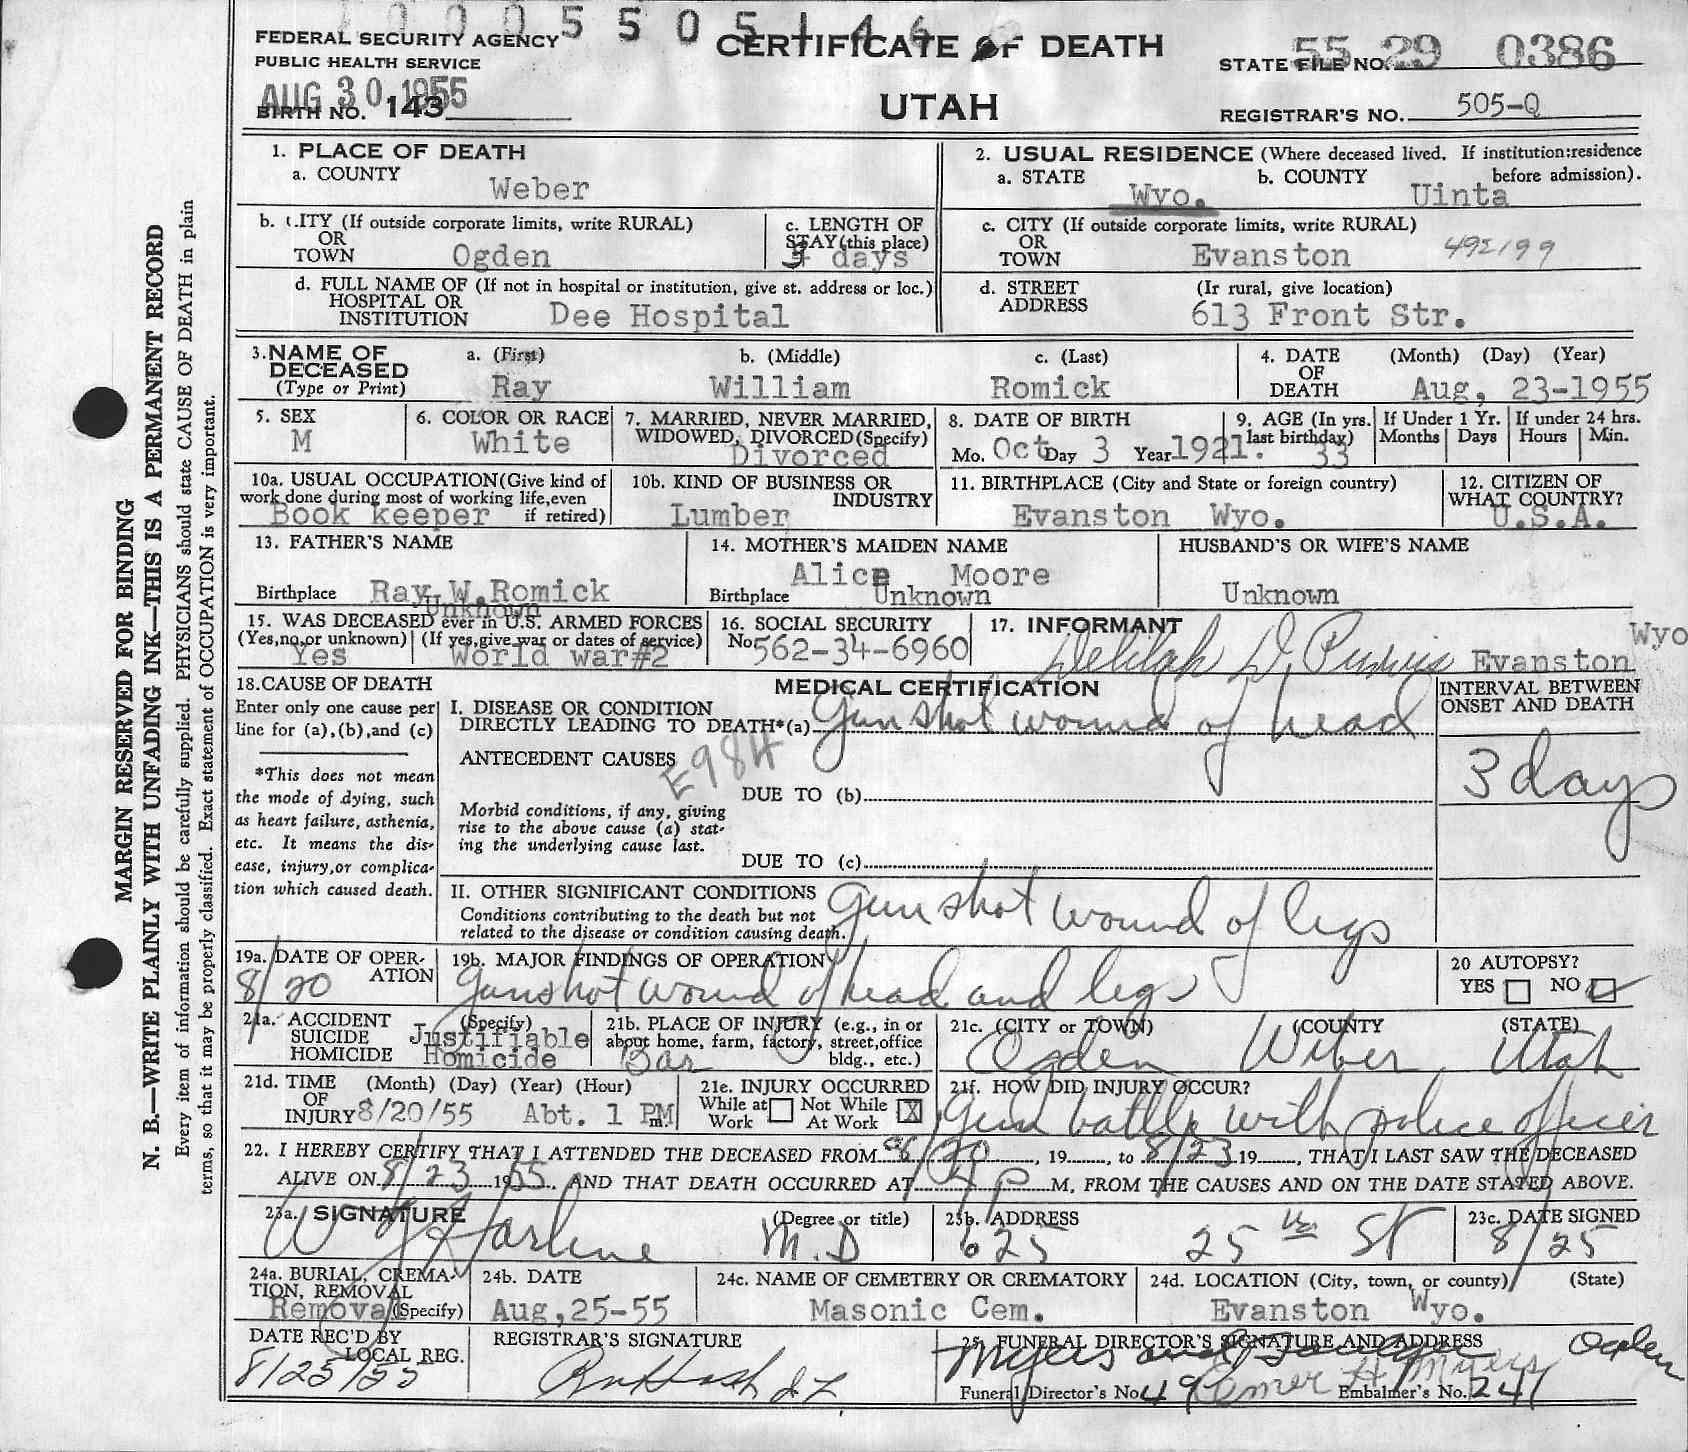 FEDERAL SECURITY AGENCY
PUBLIC HEALTH SERVICE
AUG 30 1955
BIRTH NO. 143
CERTIFICATE OF DEATH
UTAH
STATE FILE NO. 55 29 0386
REGISTRAR'S NO. 505-Q
MARGIN RESERVED FOR BINDING
N. B.—WRITE PLAINLY WITH UNFADING INK—THIS IS A PERMANENT RECORD
Every item of information should be carefully supplied. PHYSICIANS should state CAUSE OF DEATH in plain
terms, so that it may be properly classified. Exact statement of OCCUPATION is very important.
1. PLACE OF DEATH
a. COUNTY Weber
2. USUAL RESIDENCE (Where deceased lived. If institution:residence before admission).
a. STATE Wyo. b. COUNTY Uinta
b. CITY (If outside corporate limits, write RURAL) OR TOWN Ogden
c. LENGTH OF STAY (this place) days
c. CITY (If outside corporate limits, write RURAL) OR TOWN Evanston
d. FULL NAME OF (If not in hospital or institution, give st. address or loc.) HOSPITAL OR INSTITUTION Dee Hospital
d. STREET ADDRESS (Ir rural, give location) 613 Front Str.
3. NAME OF DECEASED (Type or Print)
a. (First) Ray
b. (Middle) William
c. (Last) Romick
4. DATE OF DEATH (Month) (Day) (Year) Aug, 23-1955
5. SEX M
6. COLOR OR RACE White
7. MARRIED, NEVER MARRIED, WIDOWED, DIVORCED (Specify) Divorced
8. DATE OF BIRTH Mo. Oct Day 3 Year 1921.
9. AGE (In yrs. last birthday) 33
If Under 1 Yr. Months Days
If under 24 hrs. Hours Min.
10a. USUAL OCCUPATION (Give kind of work done during most of working life, even if retired) Book keeper
10b. KIND OF BUSINESS OR INDUSTRY Lumber
11. BIRTHPLACE (City and State or foreign country) Evanston Wyo.
12. CITIZEN OF WHAT COUNTRY? U.S.A.
13. FATHER'S NAME Ray W. Romick
Birthplace Unknown
14. MOTHER'S MAIDEN NAME Alice Moore
Birthplace Unknown
HUSBAND'S OR WIFE'S NAME Unknown
15. WAS DECEASED ever in U.S. ARMED FORCES
(Yes, no, or unknown) Yes (If yes, give war or dates of service) World war#2
16. SOCIAL SECURITY No 562-34-6960
17. INFORMANT Delilah D. Evanston Wyo
18. CAUSE OF DEATH
Enter only one cause per line for (a), (b), and (c)
*This does not mean the mode of dying, such as heart failure, asthenia, etc. It means the disease, injury, or complication which caused death.
MEDICAL CERTIFICATION
I. DISEASE OR CONDITION DIRECTLY LEADING TO DEATH*(a) Gun shot wound of head
INTERVAL BETWEEN ONSET AND DEATH
3 days
ANTECEDENT CAUSES
E984
DUE TO (b)
Morbid conditions, if any, giving rise to the above cause (a) stating the underlying cause last.
DUE TO (c)
II. OTHER SIGNIFICANT CONDITIONS
Conditions contributing to the death but not related to the disease or condition causing death.
Gun shot wound of legs
19a. DATE OF OPERATION 8/20
19b. MAJOR FINDINGS OF OPERATION Gunshot wound of head and legs
20 AUTOPSY? YES NO
21a. ACCIDENT SUICIDE HOMICIDE (Specify) Justifiable Homicide
21b. PLACE OF INJURY (e.g., in or about home, farm, factory, street, office bldg., etc.) Bar
21c. (CITY or TOWN) (COUNTY (STATE)
Ogden Weber Utah
21d. TIME OF INJURY (Month) (Day) (Year) (Hour) 8/20/55 Abt. 1 PM m.
21e. INJURY OCCURRED While at Work Not While At Work X
21f. HOW DID INJURY OCCUR? Gun battle with police officer
22. I HEREBY CERTIFY THAT I ATTENDED THE DECEASED FROM 8/20, 19, to 8/23 19, THAT I LAST SAW THE DECEASED
ALIVE ON 8/23 1955 AND THAT DEATH OCCURRED AT P M, FROM THE CAUSES AND ON THE DATE STATED ABOVE.
23a. SIGNATURE (Degree or title) M.D
23b. ADDRESS 625 25th St
23c. DATE SIGNED 8/25
24a. BURIAL, CREMATION, REMOVAL (Specify) Removal
24b. DATE Aug,25-55
24c. NAME OF CEMETERY OR CREMATORY Masonic Cem.
24d. LOCATION (City, town, or county) (State) Evanston Wyo.
DATE REC'D BY LOCAL REG. 8/25/55
REGISTRAR'S SIGNATURE
25. FUNERAL DIRECTOR'S SIGNATURE AND ADDRESS
Myers and Ogden
Funeral Director's No. 49 Myers Embalmer's No. 241